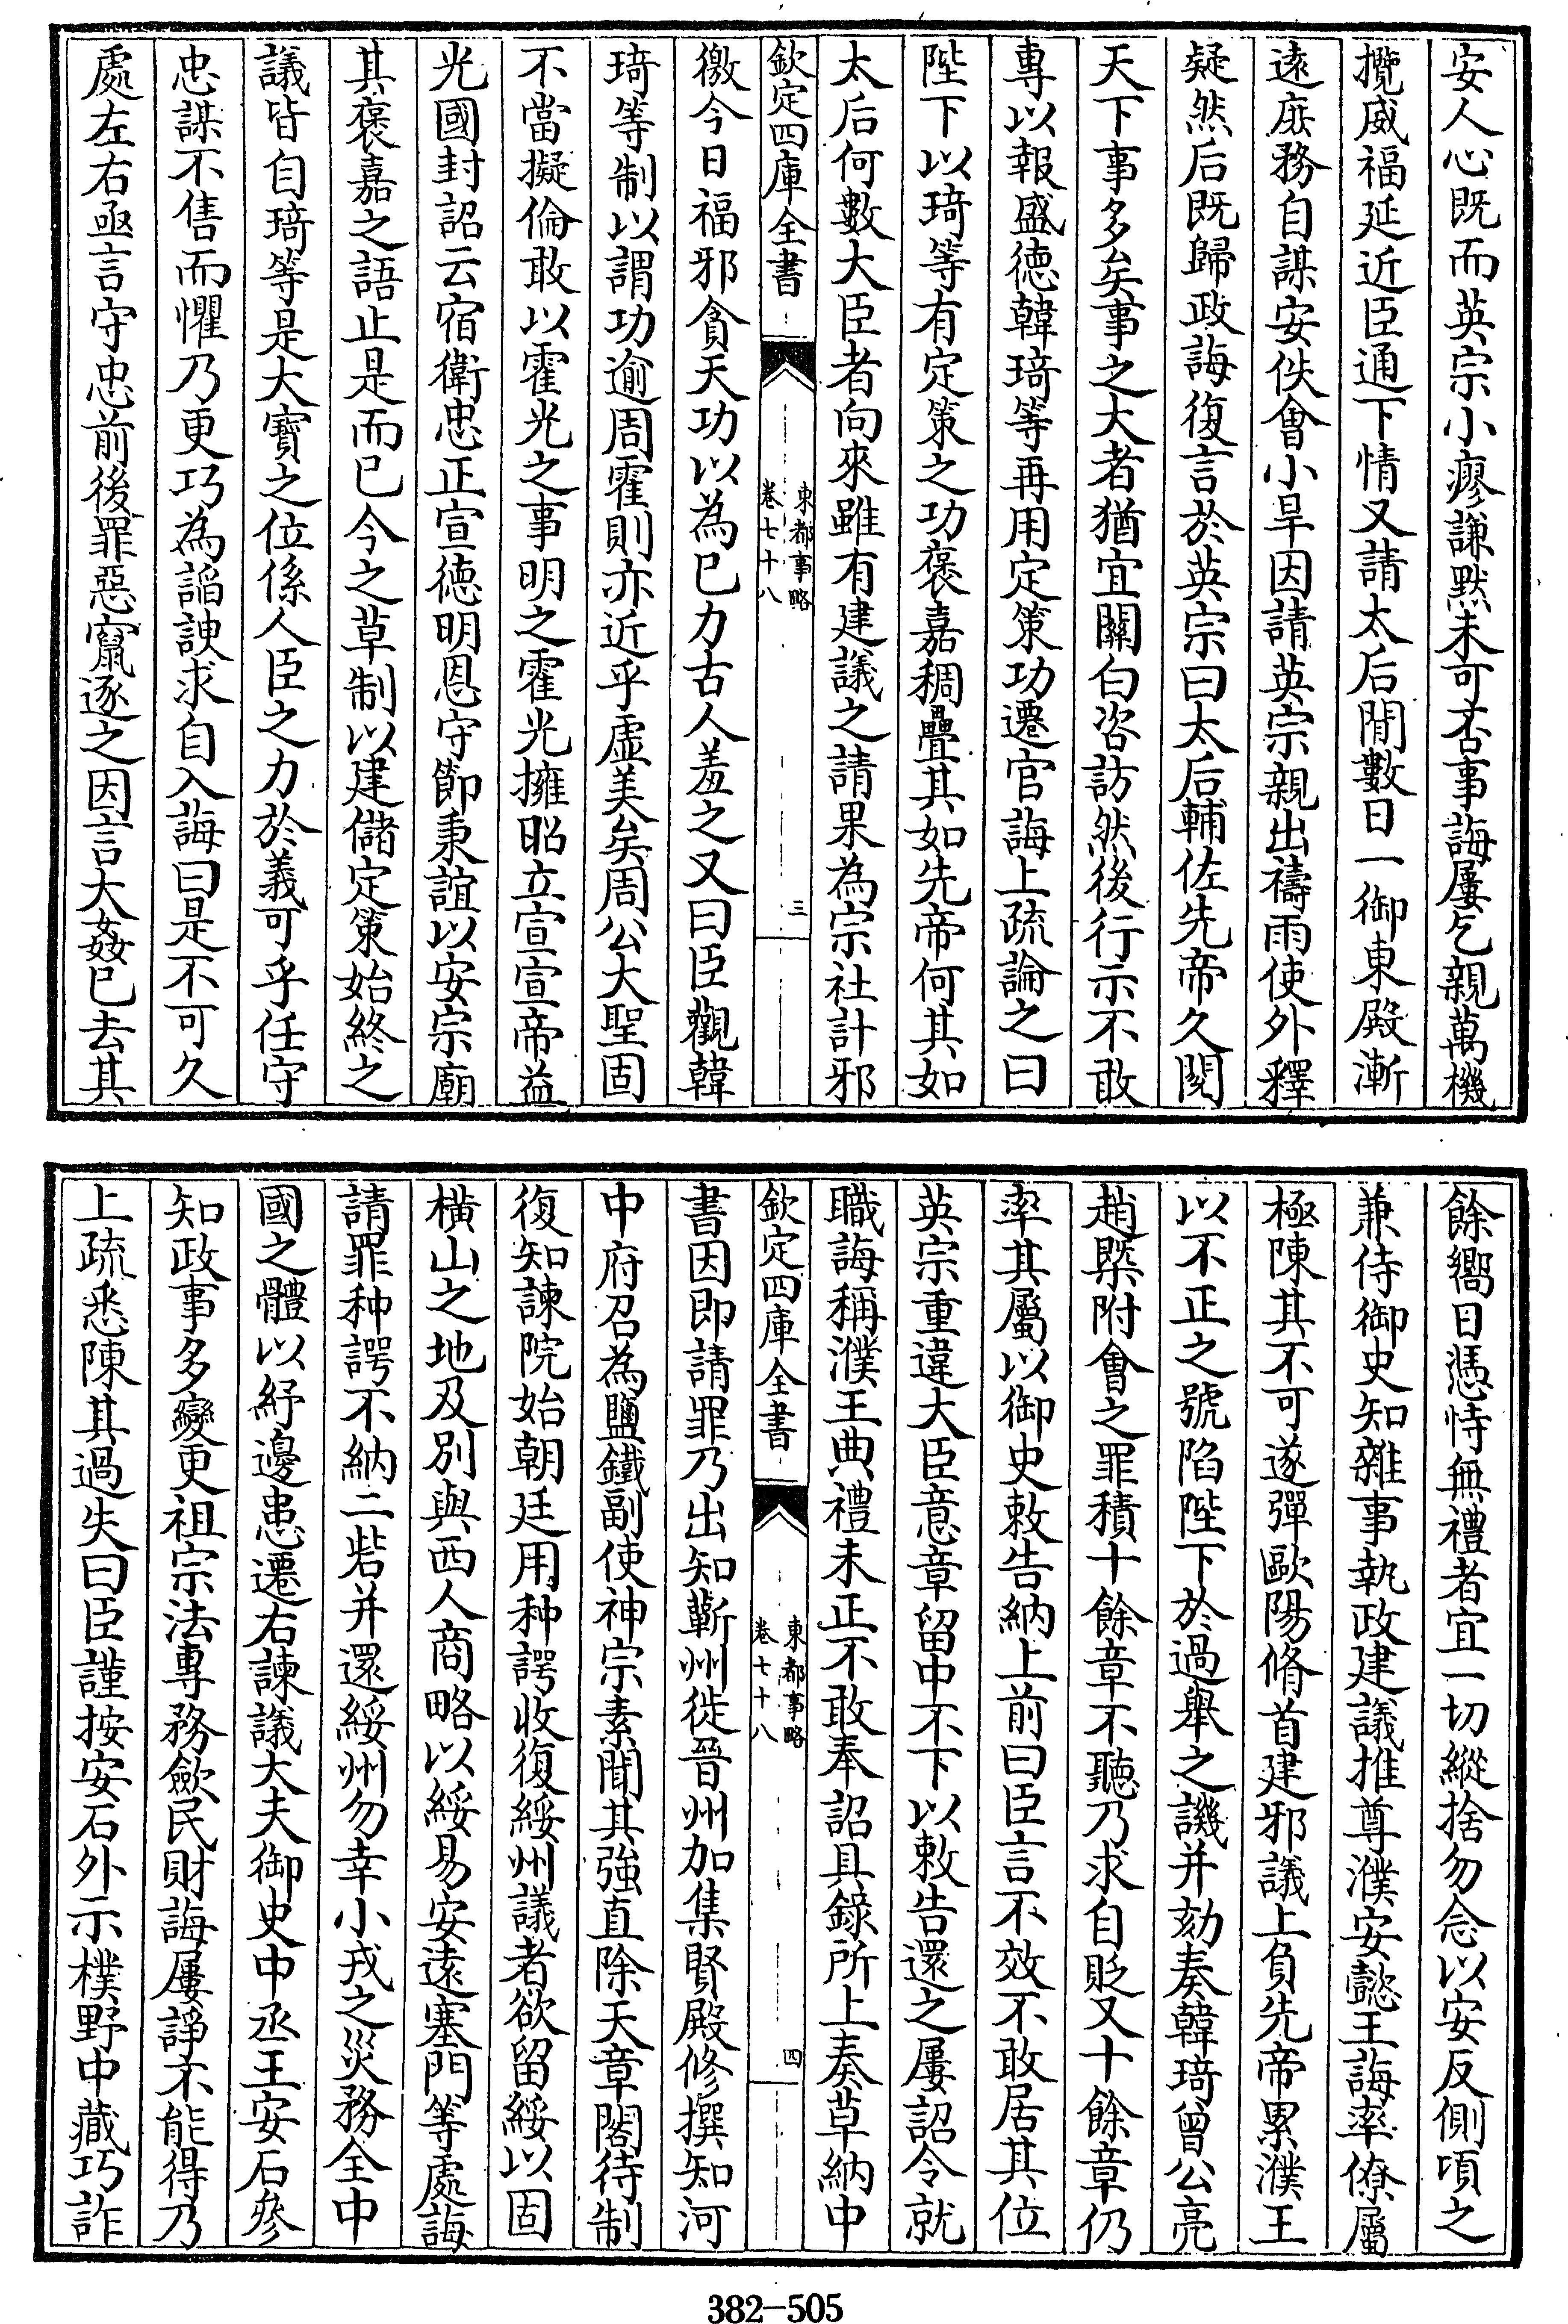 安人心既而英宗小瘳謙黙未可否事誨屢乞親萬機
攬威福延近臣通下情又請太后間數日一御東殿漸
逺庶務自謀安佚會小旱因請英宗親出禱雨使外釋
疑然后既歸政誨復言於英宗曰太后輔佐先帝久閱
天下事多矣事之大者猶宜關白咨訪然後行示不敢
專以報盛徳韓琦等再用定策功遷官誨上疏論之曰
陛下以琦等有定策之功褒嘉稠疊其如先帝何其如
太后何數大臣者向來雖有建議之請果為宗社計邪
欽定四庫全書
東都事略
卷七十八
三
徼今日福邪貪天功以為已力古人羞之又曰臣觀韓
琦等制以謂功逾周霍則亦近乎虛美矣周公大聖固
不當擬倫敢以霍光之事明之霍光擁昭立宣宣帝益
光國封詔云宿衛忠正宣徳明恩守節秉誼以安宗廟
其褒嘉之語止是而已今之草制以建儲定策始終之
議皆自琦等是大寶之位係人臣之力於義可乎任守
忠謀不售而懼乃更巧為謟諛求自入誨曰是不可久
處左右亟言守忠前後罪惡竄逐之因言大姦已去其
餘嚮日憑恃無禮者宜一切縱捨勿念以安反側項之
兼侍御史知雜事執政建議推尊濮安懿王誨率僚屬
極陳其不可遂彈歐陽脩首建邪議上負先帝累濮王
以不正之號陷陛下於過舉之譏并劾奏韓琦曾公亮
趙槩附會之罪積十餘章不聽乃求自貶又十餘章仍
率其屬以御史敕告納上前曰臣言不效不敢居其位
英宗重違大臣意章留中不下以敕告還之屢詔令就
職誨稱濮王典禮未正不敢奉詔具錄所上奏草納中
欽定四庫全書
東都事略
卷七十八
四
書因即請罪乃出知蘄州徙晉州加集賢殿修撰知河
中府召為鹽鐵副使神宗素聞其強直除天章閣待制
復知諫院始朝廷用种諤收復綏州議者欲留綏以固
橫山之地及別與西人商略以綏易安逺塞門等處誨
請罪种諤不納二砦并還綏州勿幸小戎之災務全中
國之體以紓邊患遷右諫議大夫御史中丞王安石參
知政事多變更祖宗法專務斂民財誨屢諍不能得乃
上疏悉陳其過失曰臣謹按安石外示樸野中藏巧詐
382-505